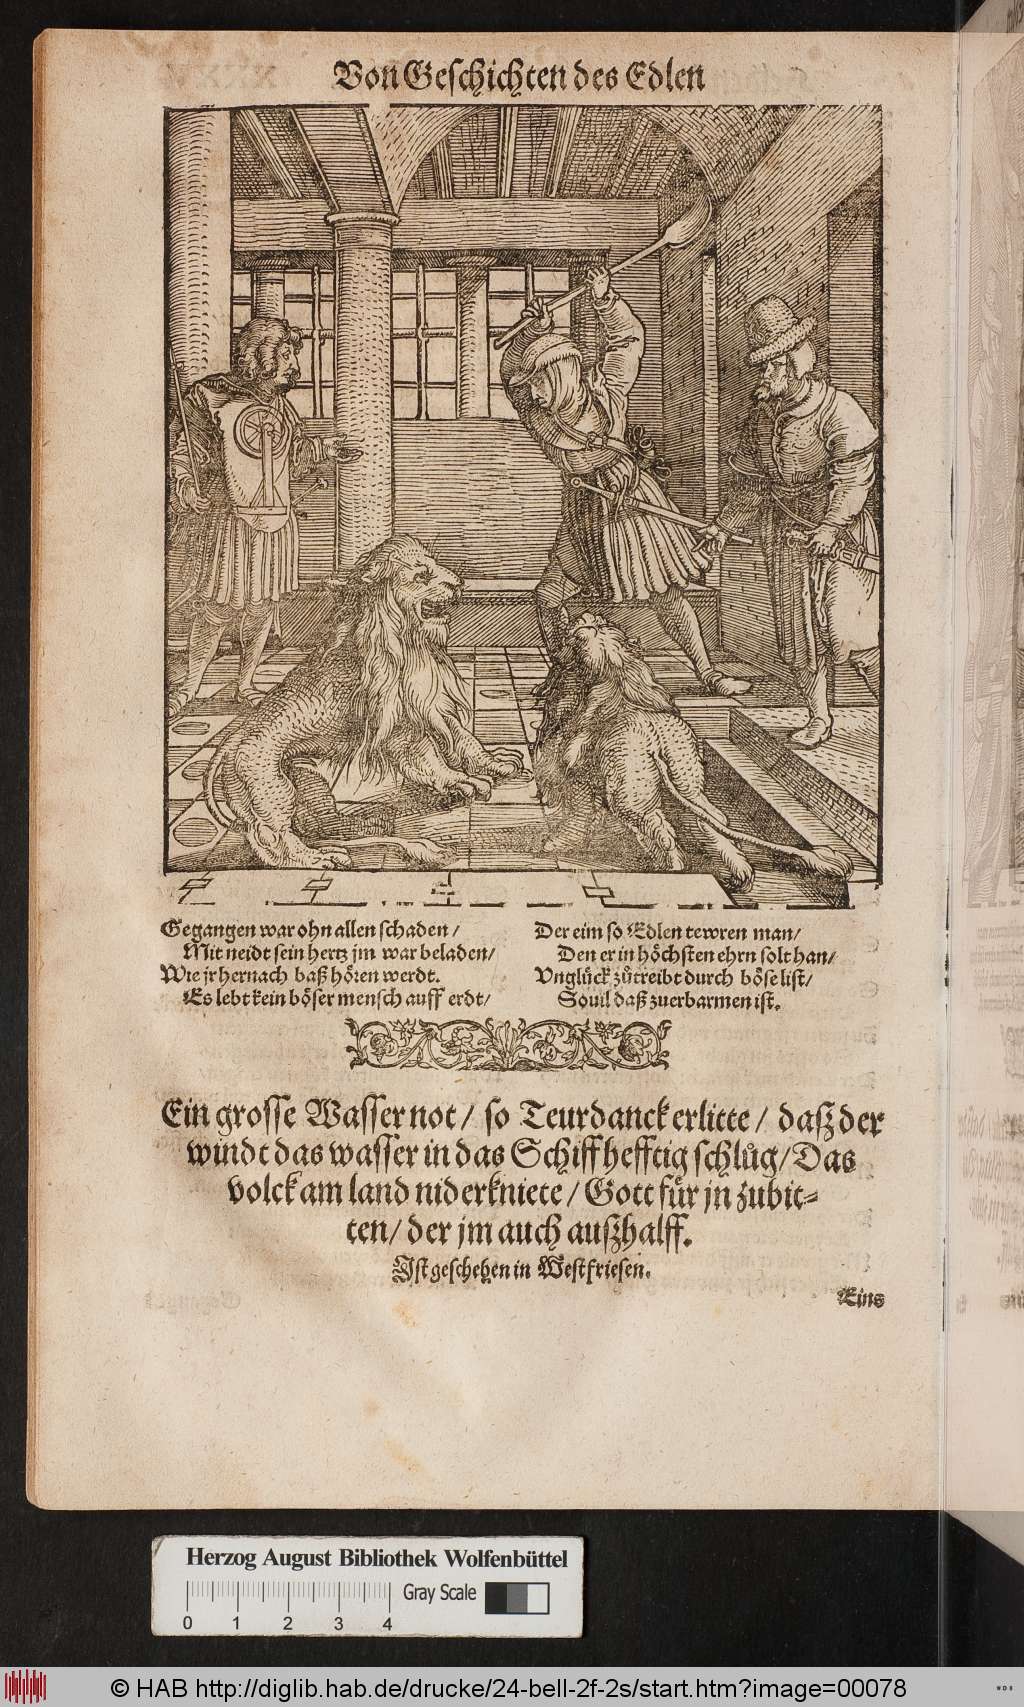 Von Geschichten des Edlen
Gegangen war ohn allen schaden /
Mit neidt sein hertz jm war beladen/
Wie jr hernach baß hören werdt.
Es lebt kein böser mensch auff erdt/
Der eim so Edlen tewren man/
Den er in höchsten ehrn solt han/
Vnglück zůtreibt durch böse list/
Souil daß zuerbarmen ist.
Ein grosse Wasser not / so Teurdanck erlitte / daß der
windt das wasser in das Schiff hefftig schlůg / Das
volck am land niderkniete / Gott für jn zubit-
ten / der jm auch außhalff.
Ist geschehen in Westfriesen.
Eins
Herzog August Bibliothek Wolfenbüttel
Gray Scale
0 1 2 3 4
© HAB http://diglib.hab.de/drucke/24-bell-2f-2s/start.htm?image=00078
WDB